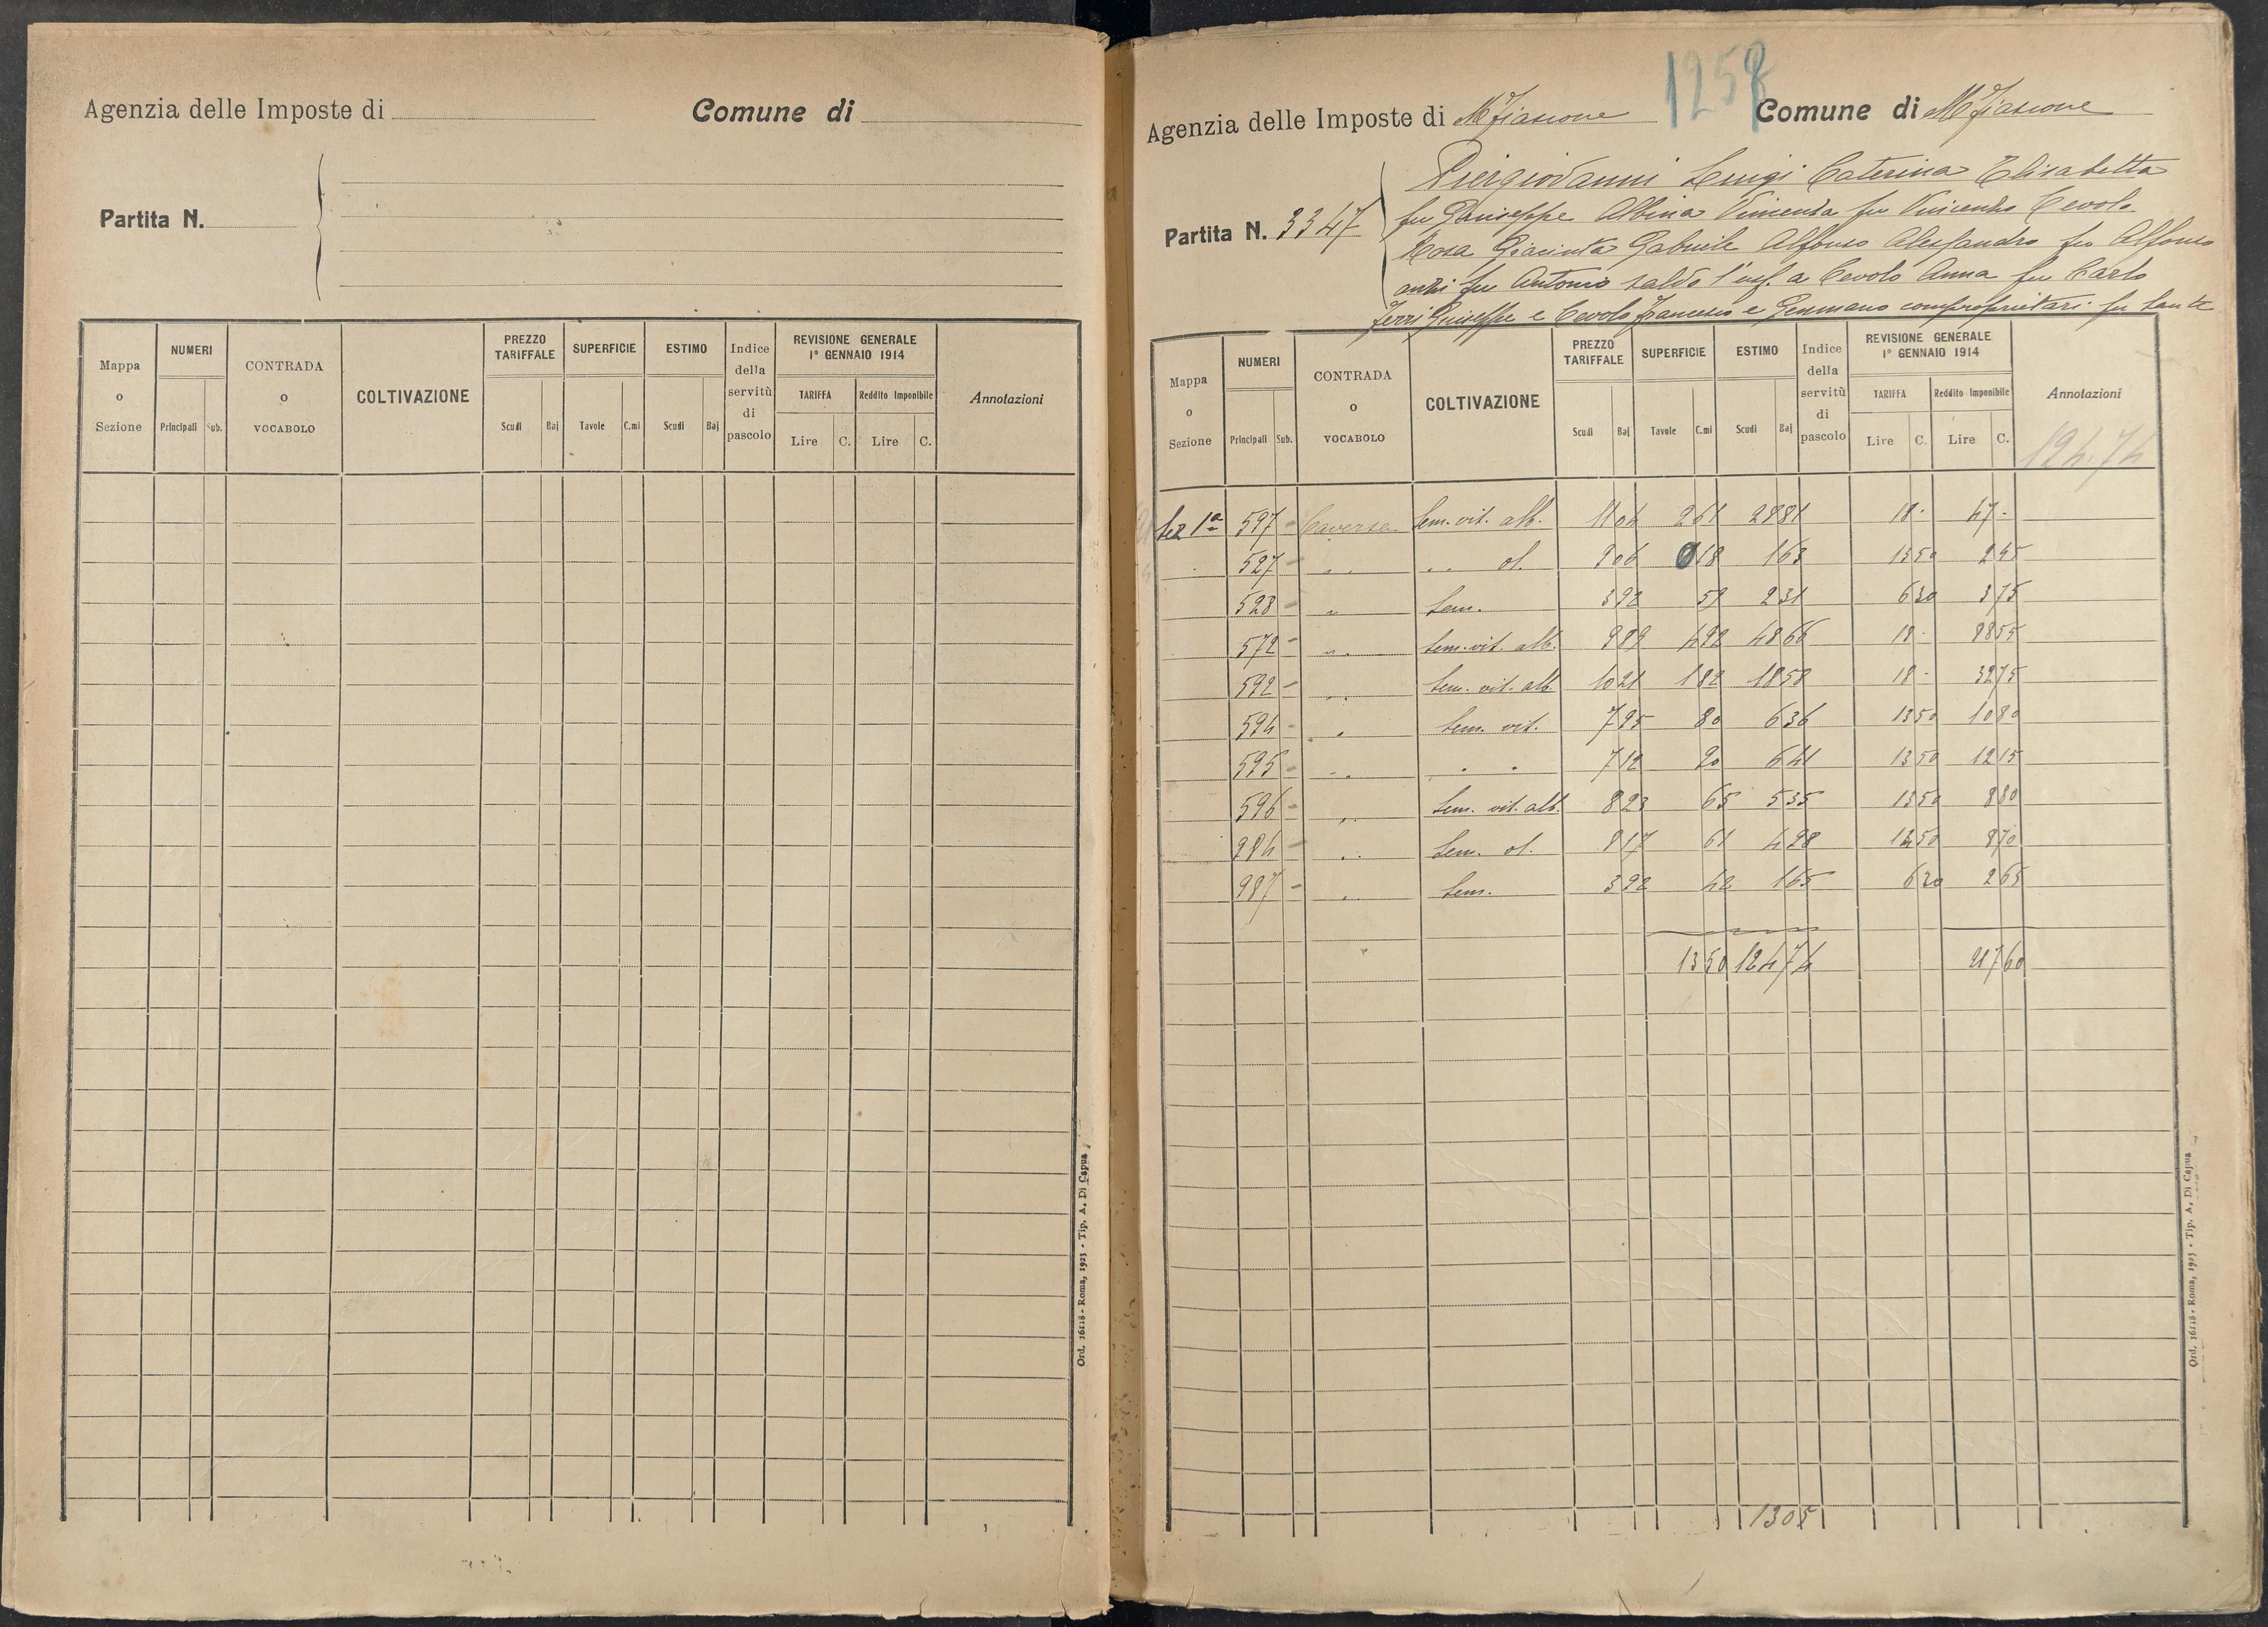 Agenzia delle Imposte di
Comune di
Partita N.
Mappa o Sezione
NUMERI
Principali
Sub.
CONTRADA o VOCABOLO
COLTIVAZIONE
PREZZO TARIFFALE
Scudi
Baj
SUPERFICIE
Tavole
C.mi
ESTIMO
Scudi
Baj
Indice della servitù di pascolo
REVISIONE GENERALE
1° GENNAIO 1914
TARIFFA
Reddito Imponibile
Lire
C.
Lire
C.
Annotazioni
Ord. 16118 - Roma, 1923 - Tip. A. Di Capua
1258
Agenzia delle Imposte di M Fiascone
Comune di M Fiascone
Partita N. 3347
Piergiovanni Luigi Caterina Elisabetta
fu Giuseppe Albina Vincenza fu Vincenzo Cevolo
Rosa Giacinta Gabriele Alfonso Alessandro fu Alfonso
fu Antonio salvo l'usf. a Cevolo Anna fu Carlo
Ferri Giuseppe e Cevolo Francesco e Gennaro comproprietari fu Sante
Mappa o Sezione
NUMERI
Principali
Sub.
CONTRADA o VOCABOLO
COLTIVAZIONE
PREZZO TARIFFALE
Scudi
Baj
SUPERFICIE
Tavole
C.mi
ESTIMO
Scudi
Baj
Indice della servitù di pascolo
REVISIONE GENERALE
1° GENNAIO 1914
TARIFFA
Reddito Imponibile
Lire
C.
Lire
C.
Annotazioni
124.74
Sez 1a 597 - Caversa Sem. vit. alb. 1104 261 2881 18 - 47 -
527 - " " " " ol. 906 018 163 1350 245
528 - " Sem. 392 59 231 630 375
572 - " " Sem. vit. alb. 989 492 4866 18 - 8855
592 - " " Sem. vit. alb. 1021 182 1858 18 - 3275
594 - " Sem. vit. 795 80 636 1350 1080
595 - " " " " 712 90 641 1350 1215
596 - " " Sem. vit. alb. 823 65 535 1350 880
984 - " " Sem. ol. 817 61 498 1450 870
987 - " " Sem. 392 42 165 630 265
1350 12474 21760
1305
Ord. 16118 - Roma, 1923 - Tip. A. Di Capua